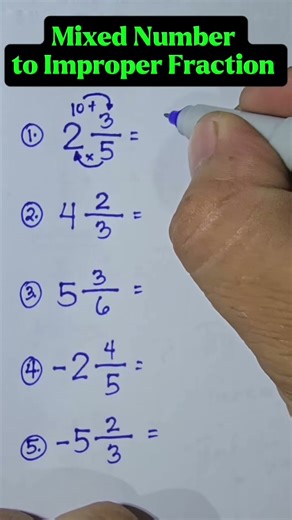 Mixed Number
to Improper Fraction
10 +
1. 2 3/5 =
×
2. 4 2/3 =
3. 5 3/6 =
4. -2 4/5 =
5. -5 2/3 =